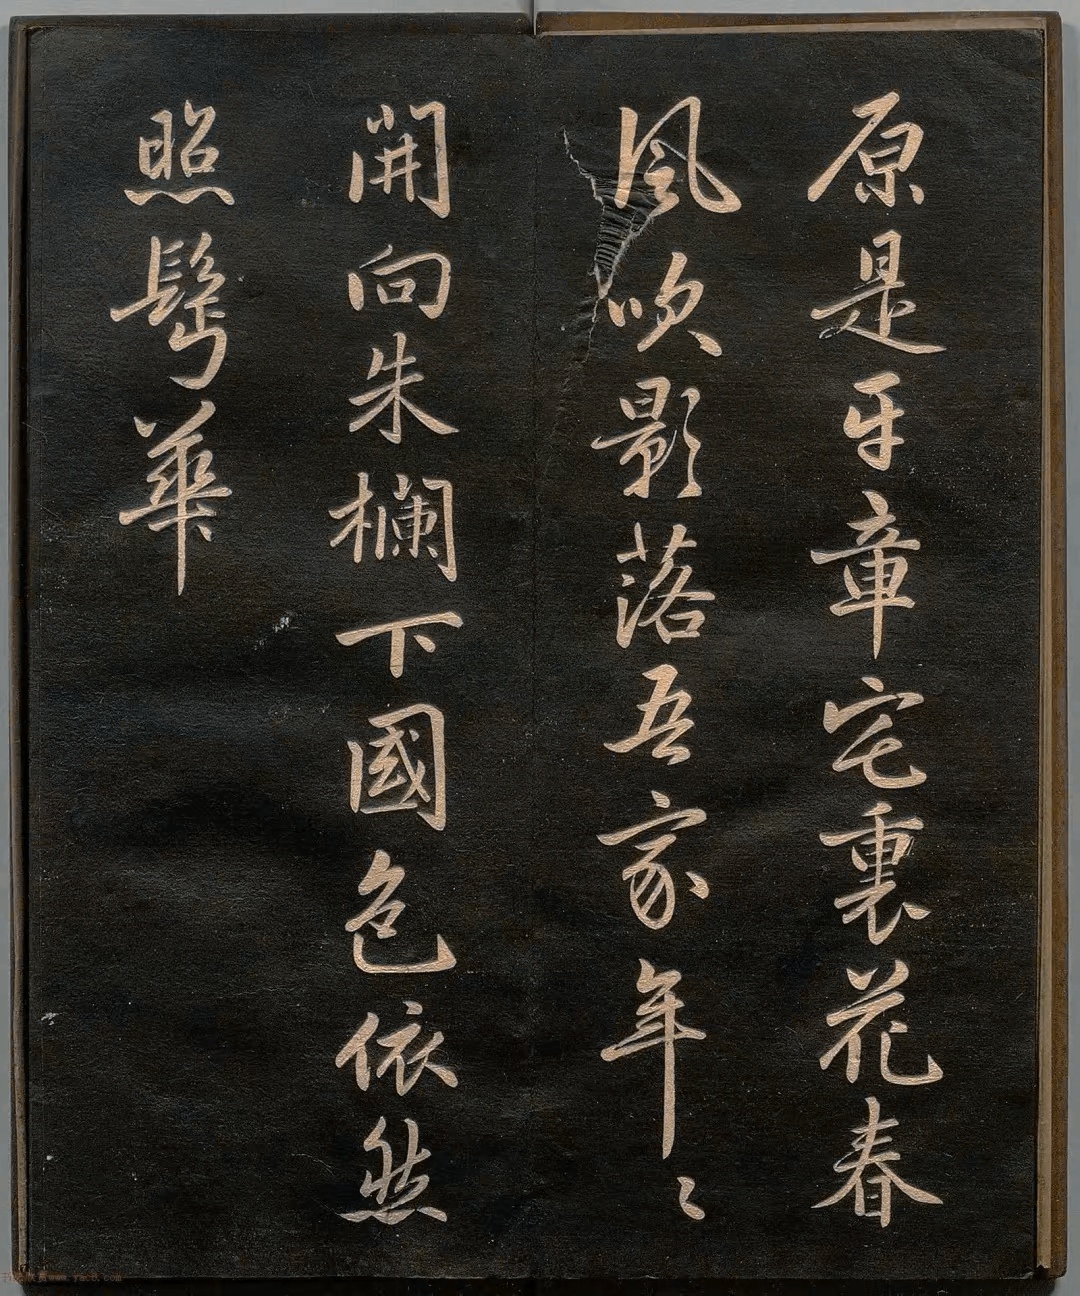 原是牙章宅裏花春
風吹影落吾家年〻
開向朱欄下國色依然
照鬂華